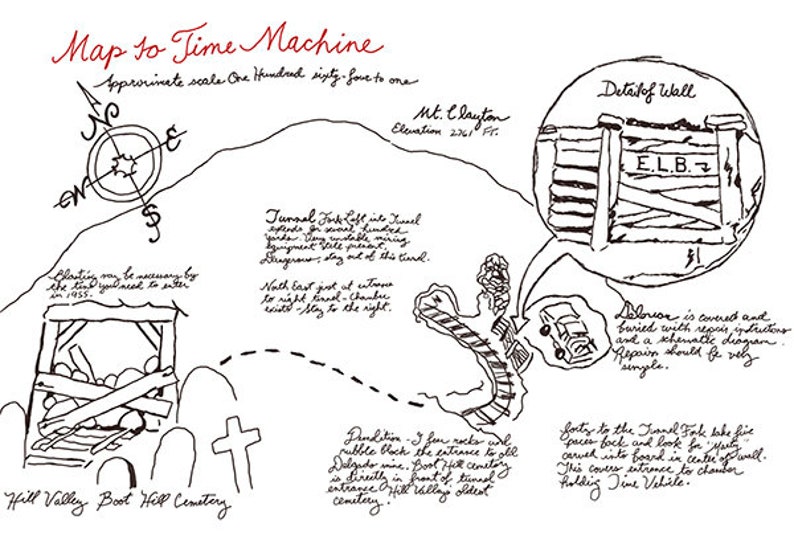 Map to Time Machine
Approximate scale One Hundred sixty-four to one
N
E
W
S
Mt. Clayton
Elevation 2761 FT.
Detail of Wall
E.L.B.
Tunnel Fork Left into Tunnel
extends for several hundred
yards. Very unstable mining
equipment still present.
Dangerous, stay out of this tunnel.
North East just at entrance
to right tunnel - Chamber
exists - Stay to the right.
Blasting may be necessary by
the time you need to enter
in 1955.
Delorean is covered and
buried with repair instructions
and a schematic diagram.
Repairs should be very
simple.
Demolition - I fear rocks and
rubble block the entrance to old
Delgado mine. Boot Hill cemetery
is directly in front of tunnel
entrance Hill Valley's oldest
cemetery.
to the Tunnel Fork take five
paces back and look for
carved into board in center of wall.
This covers entrance to chamber
holding Time Vehicle.
Hill Valley Boot Hill Cemetery